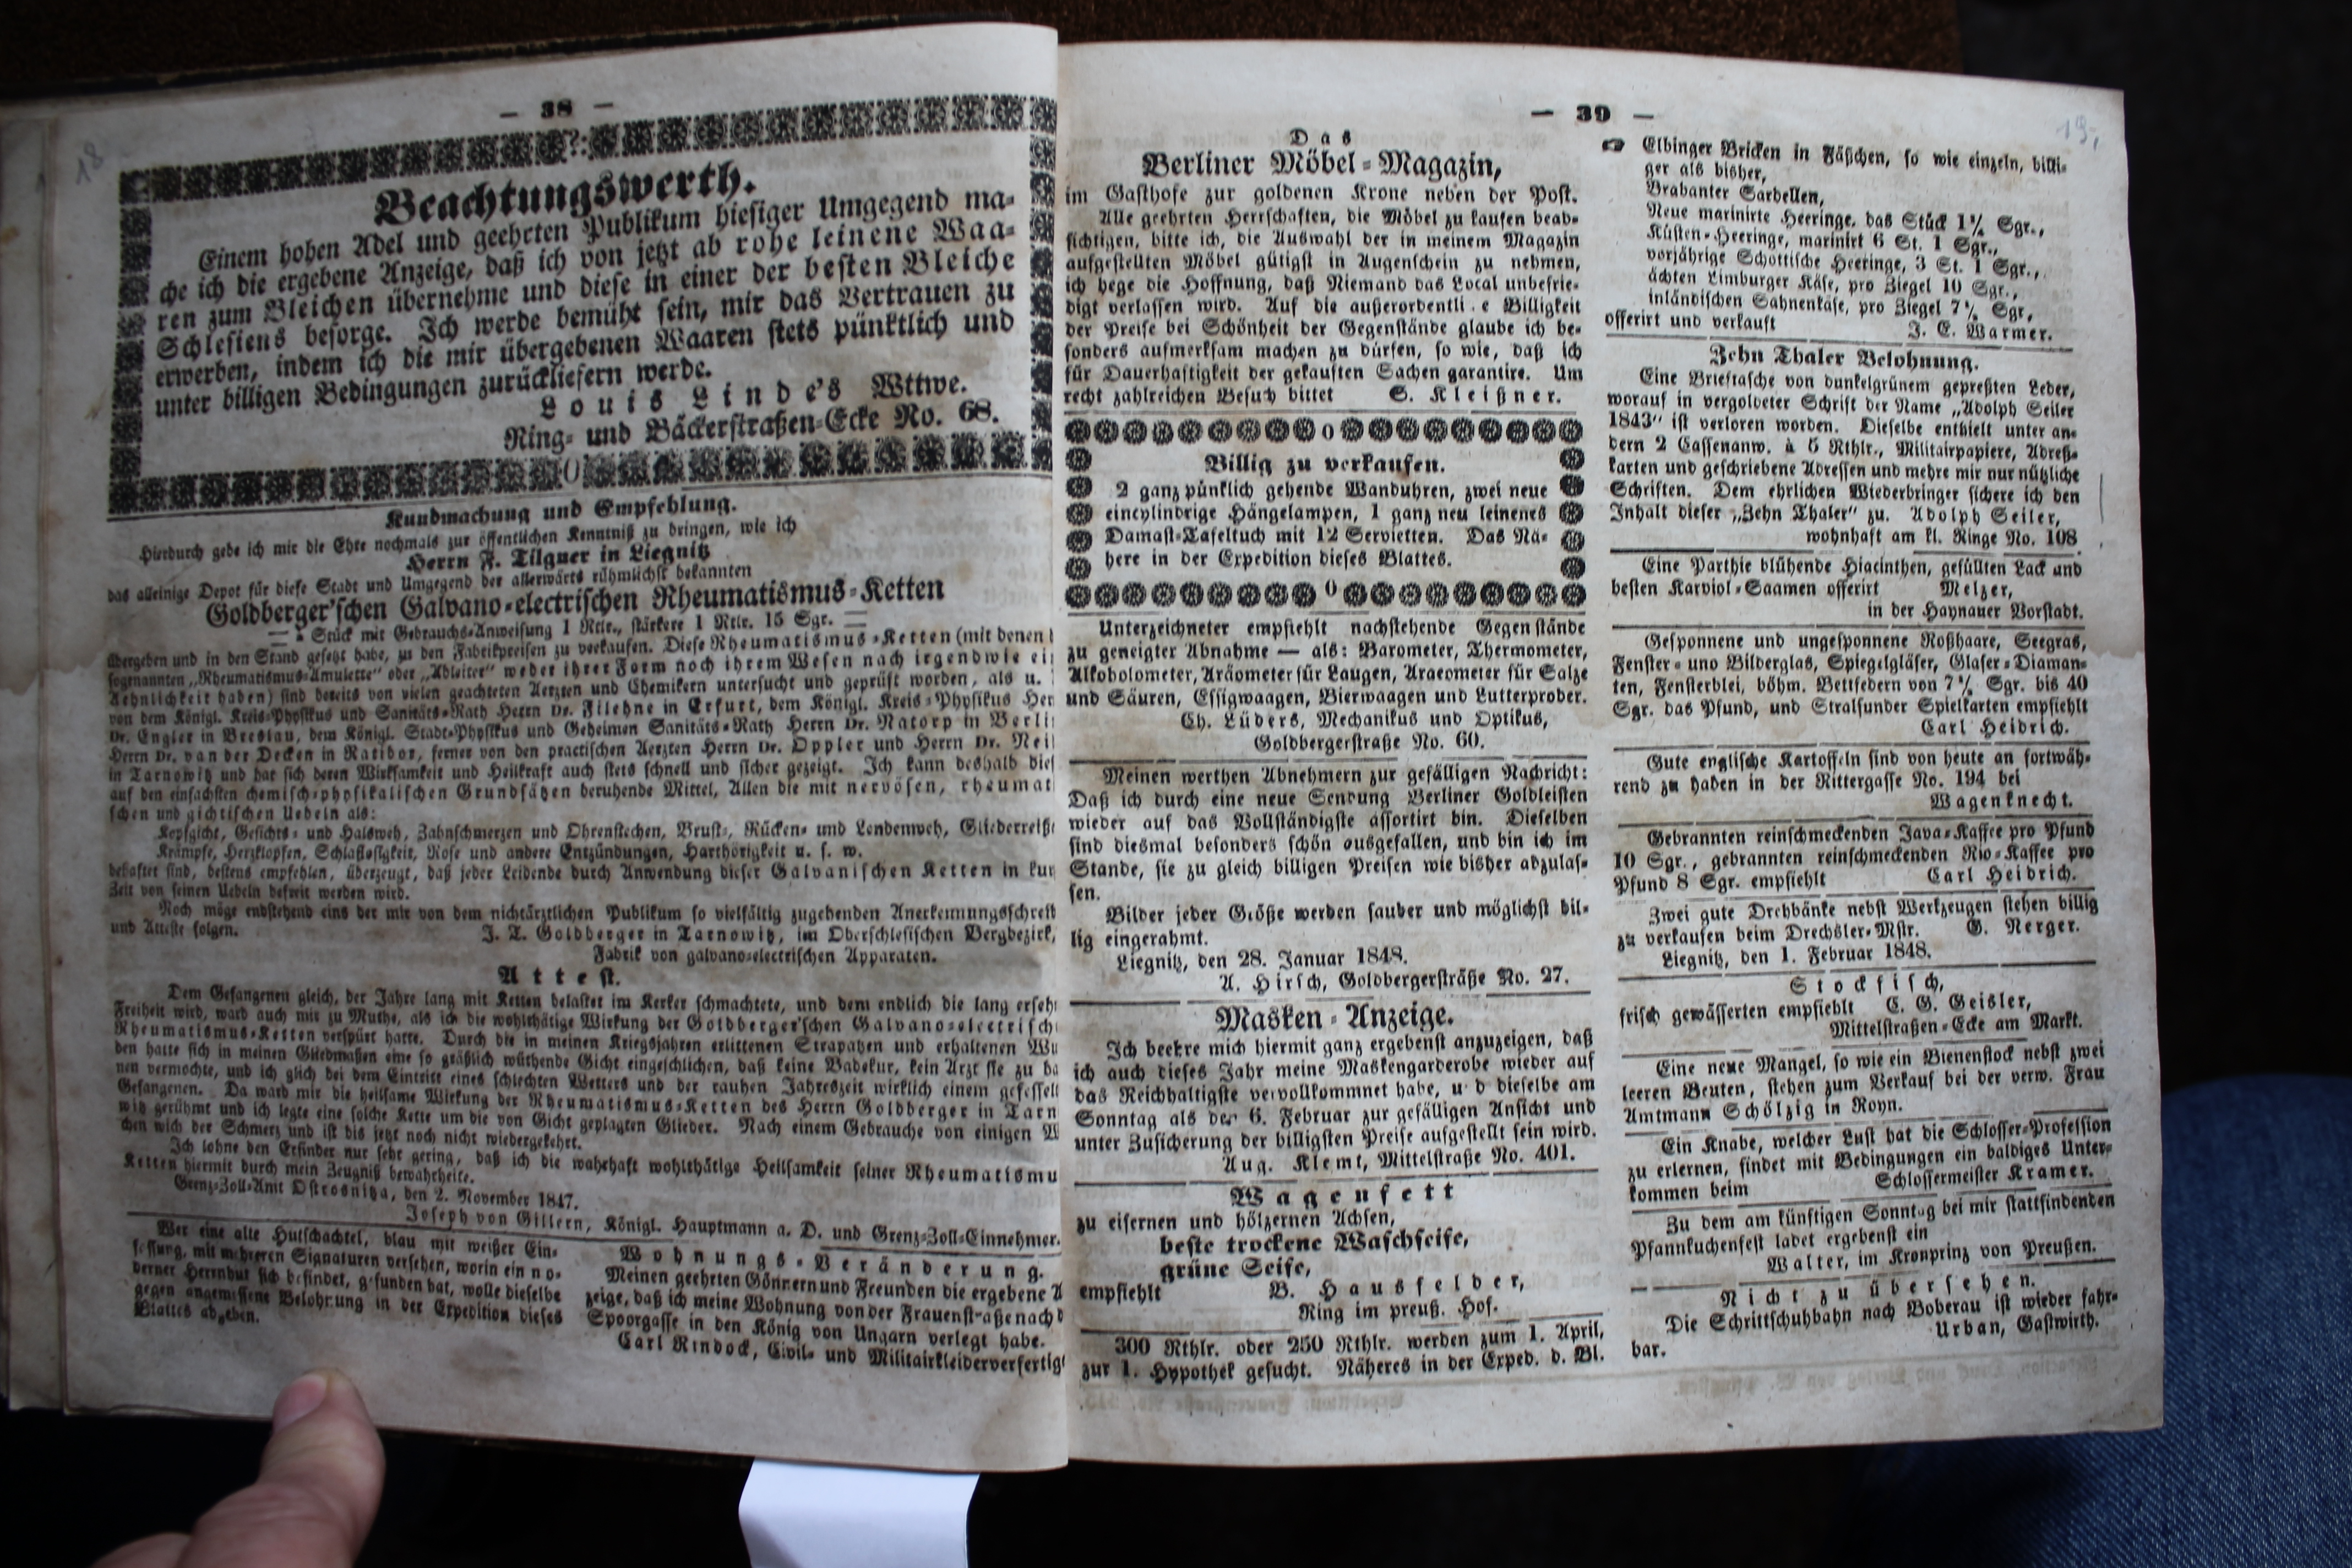 — 38 —
18
Beachtungswerth.
Einem hohen Adel und geehrten Publikum hiesiger Umgegend ma-
che ich die ergebene Anzeige, daß ich von jetzt ab rohe leinene Waa-
ren zum Bleichen übernehme und diese in einer der besten Bleiche
Schlesiens besorge. Ich werde bemüht sein, mir das Vertrauen zu
erwerben, indem ich die mir übergebenen Waaren stets pünktlich und
unter billigen Bedingungen zurückliefern werde.
Louis Linde's Wttwe.
Ring- und Bäckerstraßen-Ecke No. 68.
Kundmachung und Empfehlung.
Hierdurch gebe ich mir die Ehre nochmals zur öffentlichen Kenntniß zu bringen, wie ich
Herrn F. Tilgner in Liegnitz
das alleinige Depot für diese Stadt und Umgegend der allerwärts rühmlichst bekannten
Goldberger'schen Galvano-electrischen Rheumatismus-Ketten
— à Stück mit Gebrauchs-Anweisung 1 Rtlr., stärkere 1 Rtlr. 15 Sgr. —
übergeben und in den Stand gesetzt habe, zu den Fabrikpreisen zu verkaufen. Diese Rheumatismus-Ketten (mit denen
sogenannten „Rheumatismus-Amulette" oder „Ableiter" weder ihrer Form noch ihrem Wesen nach irgendwie ei
Aehnlichkeit haben) sind bereits von vielen geachteten Aerzten und Chemikern untersucht und geprüft worden, als u.
von dem Königl. Kreis-Physikus und Sanitäts-Rath Herrn Dr. Filehne in Erfurt, dem Königl. Kreis-Physikus Her
Dr. Engler in Breslau, dem Königl. Stadt-Physikus und Geheimen Sanitäts-Rath Herrn Dr. Natorp in Berli
Herrn Dr. van der Decken in Ratibor, ferner von den practischen Aerzten Herrn Dr. Oppler und Herrn Dr. Nei
in Tarnowitz und hat sich deren Wirksamkeit und Heilkraft auch stets schnell und sicher gezeigt. Ich kann deshalb dies
auf den einfachsten chemisch-physikalischen Grundsätzen beruhende Mittel, Allen die mit nervösen, rheumat
schen und gichtischen Uebeln als:
Kopfgicht, Gesichts- und Halsweh, Zahnschmerzen und Ohrenstechen, Brust-, Rücken- und Lendenweh, Gliederreiß
Krämpfe, Herzklopfen, Schlaflosigkeit, Rose und andere Entzündungen, Harthörigkeit u. s. w.
behaftet sind, bestens empfehlen, überzeugt, daß jeder Leidende durch Anwendung dieser Galvanischen Ketten in kur
Zeit von seinen Uebeln befreit werden wird.
Noch möge endstehend eins der mir von dem nichtärztlichen Publikum so vielfältig zugehenden Anerkennungsschreib
und Atteste folgen.
J. T. Goldberger in Tarnowitz, im Oberschlesischen Bergbezirk,
Fabrik von galvano-electrischen Apparaten.
Attest.
Dem Gefangenen gleich, der Jahre lang mit Ketten belastet im Kerker schmachtete, und dem endlich die lang erseh
Freiheit wird, ward auch mir zu Muthe, als ich die wohlthätige Wirkung der Goldberger'schen Galvano-electrisch
Rheumatismus-Ketten verspürt hatte. Durch die in meinen Kriegsjahren erlittenen Strapatzen und erhaltenen Wu
den hatte sich in meinen Gliedmaßen eine so gräßlich wüthende Gicht eingeschlichen, daß keine Badekur, kein Arzt sie zu ba
nen vermochte, und ich glich bei dem Eintritt eines schlechten Wetters und der rauhen Jahreszeit wirklich einem gefessel
Gefangenen. Da ward mir die heilsame Wirkung der Rheumatismus-Ketten des Herrn Goldberger in Tarn
witz gerühmt und ich legte eine solche Kette um die von Gicht geplagten Glieder. Nach einem Gebrauche von einigen W
chen wich der Schmerz und ist bis jetzt noch nicht wiedergekehrt.
Ich lohne den Erfinder nur sehr gering, daß ich die wahrhaft wohlthätige Heilsamkeit seiner Rheumatismu
Ketten hiermit durch mein Zeugniß bewahrheite.
Grenz-Zoll-Amt Ostrosnitza, den 2. November 1847.
Joseph von Gillern, Königl. Hauptmann a. D. und Grenz-Zoll-Einnehmer.
Wer eine alte Hutschachtel, blau mit weißer Ein-
fassung, mit mehreren Signaturen versehen, worin ein mo-
derner Herrnhut sich befindet, gefunden hat, wolle dieselbe
gegen angemessene Belohnung in der Expedition dieses
Blattes abgeben.
Wohnungs-Veränderung.
Meinen geehrten Gönnern und Freunden die ergebene A
zeige, daß ich meine Wohnung von der Frauenstraße nach d
Spoorgasse in den König von Ungarn verlegt habe.
Carl Rindock, Civil- und Militairkleiderverfertig
— 39 —
19
Das
Berliner Möbel-Magazin,
im Gasthofe zur goldenen Krone neben der Post.
Alle geehrten Herrschaften, die Möbel zu kaufen beab-
sichtigen, bitte ich, die Auswahl der in meinem Magazin
aufgestellten Möbel gütigst in Augenschein zu nehmen,
ich hege die Hoffnung, daß Niemand das Local unbefrie-
digt verlassen wird. Auf die außerordentli e Billigkeit
der Preise bei Schönheit der Gegenstände glaube ich be-
sonders aufmerksam machen zu dürfen, so wie, daß ich
für Dauerhaftigkeit der gekauften Sachen garantire. Um
recht zahlreichen Besuch bittet S. Kleißner.
Billig zu verkaufen.
2 ganz pünklich gehende Wanduhren, zwei neue
eincylindrige Hängelampen, 1 ganz neu leinenes
Damast-Tafeltuch mit 12 Servietten. Das Nä-
here in der Expedition dieses Blattes.
Unterzeichneter empfiehlt nachstehende Gegenstände
zu geneigter Abnahme — als: Barometer, Thermometer,
Alkoholometer, Aräometer für Laugen, Araeometer für Salze
und Säuren, Essigwaagen, Bierwaagen und Lutterprober.
Ch. Lüders, Mechanikus und Optikus,
Goldbergerstraße No. 60.
Meinen werthen Abnehmern zur gefälligen Nachricht:
Daß ich durch eine neue Sendung Berliner Goldleisten
wieder auf das Vollständigste assortirt bin. Dieselben
sind diesmal besonders schön ausgefallen, und bin ich im
Stande, sie zu gleich billigen Preisen wie bisher abzulas-
sen.
Bilder jeder Größe werden sauber und möglichst bil-
lig eingerahmt.
Liegnitz, den 28. Januar 1848.
A. Hirsch, Goldbergersträße No. 27.
Masken-Anzeige.
Ich beehre mich hiermit ganz ergebenst anzuzeigen, daß
ich auch dieses Jahr meine Maskengarderobe wieder auf
das Reichhaltigste vervollkommnet habe, u d dieselbe am
Sonntag als den 6. Februar zur gefälligen Ansicht und
unter Zusicherung der billigsten Preise aufgestellt sein wird.
Aug. Klemt, Mittelstraße No. 401.
Wagenfett
zu eisernen und hölzernen Achsen,
beste trockene Waschseife,
grüne Seife,
empfiehlt B. Hausfelder,
Ring im preuß. Hof.
300 Rthlr. oder 250 Rthlr. werden zum 1. April,
zur 1. Hypothek gesucht. Näheres in der Exped. d. Bl.
☞ Elbinger Bricken in Fäßchen, so wie einzeln, billi-
ger als bisher,
Brabanter Sardellen,
Neue marinirte Heeringe, das Stück 1¼ Sgr.,
Küsten-Heeringe, marinirt 6 St. 1 Sgr.,
vorjährige Schottische Heeringe, 3 St. 1 Sgr.,
ächten Limburger Käse, pro Ziegel 10 Sgr.,
inländischen Sahnenkäse, pro Ziegel 7½ Sgr,
offerirt und verkauft J. E. Warmer.
Zehn Thaler Belohnung.
Eine Brieftasche von dunkelgrünem gepreßten Leder,
worauf in vergoldeter Schrift der Name „Adolph Seiler
1843" ist verloren worden. Dieselbe enthielt unter an-
dern 2 Cassenanw. à 5 Rthlr., Militairpapiere, Adreß-
karten und geschriebene Adressen und mehre mir nur nützliche
Schriften. Dem ehrlichen Wiederbringer sichere ich den
Inhalt dieser „Zehn Thaler" zu. Adolph Seiler,
wohnhaft am kl. Ringe No. 108
Eine Parthie blühende Hiacinthen, gefüllten Lack und
besten Karviol-Saamen offerirt Melzer,
in der Haynauer Vorstadt.
Gesponnene und ungesponnene Roßhaare, Seegras,
Fenster- uno Bilderglas, Spiegelgläser, Glaser-Diaman-
ten, Fensterblei, böhm. Bettfedern von 7½ Sgr. bis 40
Sgr. das Pfund, und Stralsunder Spielkarten empfiehlt
Carl Heidrich.
Gute englische Kartoffeln sind von heute an fortwäh-
rend zu haben in der Rittergasse No. 194 bei
Wagenknecht.
Gebrannten reinschmeckenden Java-Kaffee pro Pfund
10 Sgr., gebrannten reinschmeckenden Rio-Kaffee pro
Pfund 8 Sgr. empfiehlt Carl Heidrich.
Zwei gute Drehbänke nebst Werkzeugen stehen billig
zu verkaufen beim Drechsler-Mstr. G. Nerger.
Liegnitz, den 1. Februar 1848.
Stockfisch,
frisch gewässerten empfiehlt C. G. Geisler,
Mittelstraßen-Ecke am Markt.
Eine neue Mangel, so wie ein Bienenstock nebst zwei
leeren Beuten, stehen zum Verkauf bei der verw. Frau
Amtmann Schölzig in Royn.
Ein Knabe, welcher Lust hat die Schlosser-Profession
zu erlernen, findet mit Bedingungen ein baldiges Unter-
kommen beim Schlossermeister Kramer.
Zu dem am künftigen Sonntag bei mir stattfindenden
Pfannkuchenfest ladet ergebenst ein
Walter, im Kronprinz von Preußen.
Nicht zu übersehen.
Die Schrittschuhbahn nach Boberau ist wieder fahr-
bar. Urban, Gastwirth.